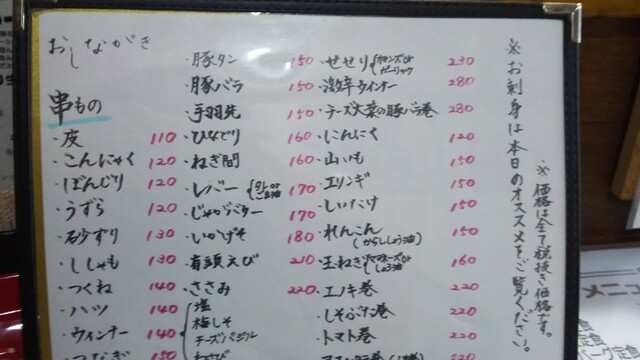 おしながき
串もの
・皮 110
・こんにゃく 120
・ぼんじり 120
・うずら 120
・砂ずり 130
・ししゃも 130
・つくね 140
・ハツ 140
・ウィンナー 140
・つなぎ 150
・豚タン 150
・豚バラ 150
・手羽先 150
・ひなどり 160
・ねぎ間 160
・レバー(タレor ごま油) 170
・じゃがバター 170
・いかげそ 180
・有頭えび 210
・ささみ 220
塩
梅しそ
わさび
・せせり 230
・激辛ウインナー 280
・チーズ大葉の豚バラ巻 280
・にんにく 120
・山いも 150
・エリンギ 150
・しいたけ 150
・れんこん 150
(からししょう油)
・玉ねぎ(マヨネーズor しょう油) 160
・エノキ巻 220
・しそ巻 220
・トマト巻 220
※お刺身は本日のオススメをご覧ください。
※価格は全て税抜き価格です。
メニュ